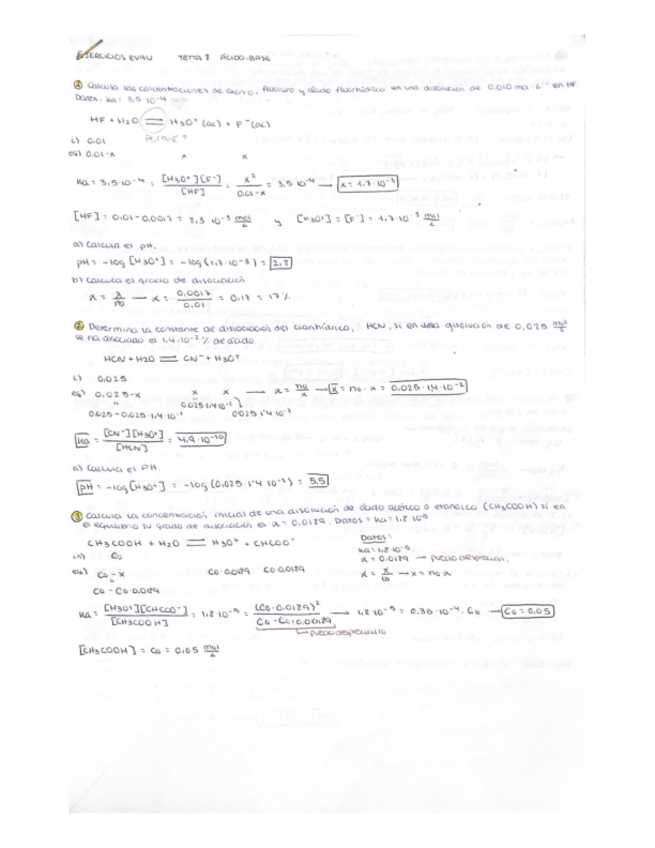 EJERCICIOS EVAU TEMA 7 ÁCIDO-BASE
① Calcula las concentraciones de oxonio, fluoruro y ácido fluorhídrico en una disolución de 0,010 mol·L⁻¹ en HF.
Datos: Ka = 3,5·10⁻⁴
HF + H₂O ⇌ H₃O⁺ (ac) + F⁻ (ac)
i) 0,01
eq) 0,01-x x x
Ka = 3,5·10⁻⁴ = [H₃O⁺][F⁻] / [HF] = x² / 0,01-x = 3,5·10⁻⁴ → x = 1,7·10⁻³
[HF] = 0,01 - 0,0017 = 8,3·10⁻³ mol/L y [H₃O⁺] = [F⁻] = 1,7·10⁻³ mol/L
a) Calcula el pH.
pH = -log [H₃O⁺] = -log (1,7·10⁻³) = 2,8
b) Calcula el grado de disociación
α = x/no → α = 0,0017 / 0,01 = 0,17 = 17 %
② Determina la constante de disociación del cianhídrico, HCN, si en una disolución de 0,025 mol/L
se ha disociado el 1,4·10⁻² % de ácido.
HCN + H₂O ⇌ CN⁻ + H₃O⁺
i) 0,025
eq) 0,025-x x x → x = no/x → x = no·α = 0,025·1,4·10⁻²
0,025·1,4·10⁻²
0,025-0,025·1,4·10⁻² 0,025·1'4·10⁻²
Ka = [CN⁻][H₃O⁺] / [HCN] = 4,9·10⁻¹⁰
a) Calcula el pH.
pH = -log [H₃O⁺] = -log (0,025·1'4·10⁻²) = 5,5
③ Calcula la concentración inicial de una disolución de ácido acético o etanoico (CH₃COOH) si en
el equilibrio su grado de disociación es α = 0,0189. Datos: Ka = 1,8·10⁻⁵
CH₃COOH + H₂O ⇌ H₃O⁺ + CHCOO⁻ Datos:
in) Co Ka = 1,8·10⁻⁵
α = 0,0189 → puedo despreciar.
eq) Co-x Co·0,0189 Co·0,0189 α = x/Co → x = no·α
Co - Co·0,0189
Ka = [H₃O⁺][CHCOO⁻] / [CH₃COOH] = 1,8·10⁻⁵ = (Co·0,0189)² / Co - Co·0,00189 → 1,8·10⁻⁵ = 0,36·10⁻⁴·Co → Co = 0,05
puedo despreciarlo
[CH₃COOH] = Co = 0,05 mol/L